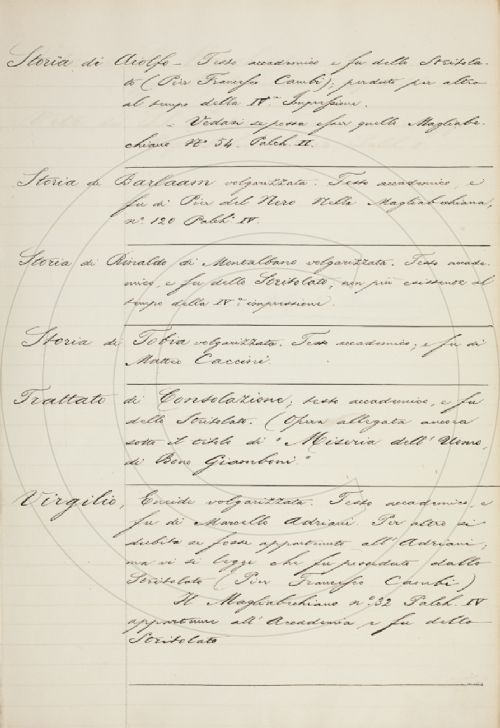 Storia di Aiolfo - Testo accademico e fu dello Stritola-
to (Pier Francesco Cambi); perduto per altro
al tempo della IVa Impressione.
- Vedasi se possa esser quello Magliabe-
chiano No 54. Palch. II.
Storia di Barlaam volgarizzata. Testo accademico, e
fu di Pier del Nero. Nella Magliabechiana,
no 120 Palch. IV.
Storia di Rinaldo di Montalbano volgarizzata. Testo accade-
mico, e fu dello Stritolato, non più esistente al
tempo della IVa impressione.
Storia di Tobia volgarizzata. Testo accademico; e fu di
Matteo Caccini.
Trattato di Consolazione; testo accademico, e fu
dello Stritolato. (Opera allegata ancora
sotto il titolo di "Miseria dell'Uomo,
di Bono Giamboni"
Virgilio, Eneide volgarizzata. Testo accademico, e
fu di Marcello Adriani. Per altro si
dubita se fosse appartenuto all'Adriani;
ma vi si legge che fu posseduto dallo
Stritolato (Pier Francesco Cambi)
Il Magliabechiano no 32 Palch. IV
appartenne all'Accademia e fu dello
Stritolato